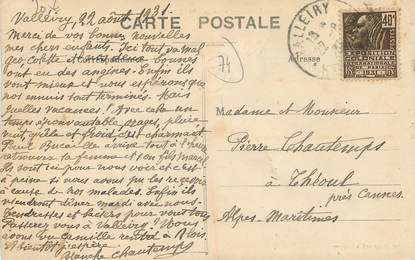 Valleiry, 22 août 1931.
CARTE POSTALE
Merci de vos bonnes nouvelles
mes chers enfants. Ici tout va mal
geo, Colette et bonnes
ont eu des angines. Enfin ils
vont mieux et nous espérons que
nos ennuis sont terminés. Mais
quelles vacances! Avec cela un
temps épouvantable, orages, pluie
vent, grêle et froid c'est charmant
Pierre Bucaille arrive tout à l'heure
retrouver sa femme et son fils Marcel
Ils sont ici pour nous voir et c'est
à peine si nous avons pu les recevoir
à cause de nos malades. Enfin ils
viendront dîner mardi avec nous.
Tendresses et baisers pour vous tous
Passerez vous à Valleiry? Nous
avons vu Camille rentré à Blois.
A bientôt j'espère.
Blanche Chautemps
74
Adresse
VALLEIRY
40c
EXPOSITION
COLONIALE
INTERNATIONALE
PARIS 1931
Madame et Monsieur
Pierre Chautemps
à Théoule
près Cannes.
Alpes-Maritimes